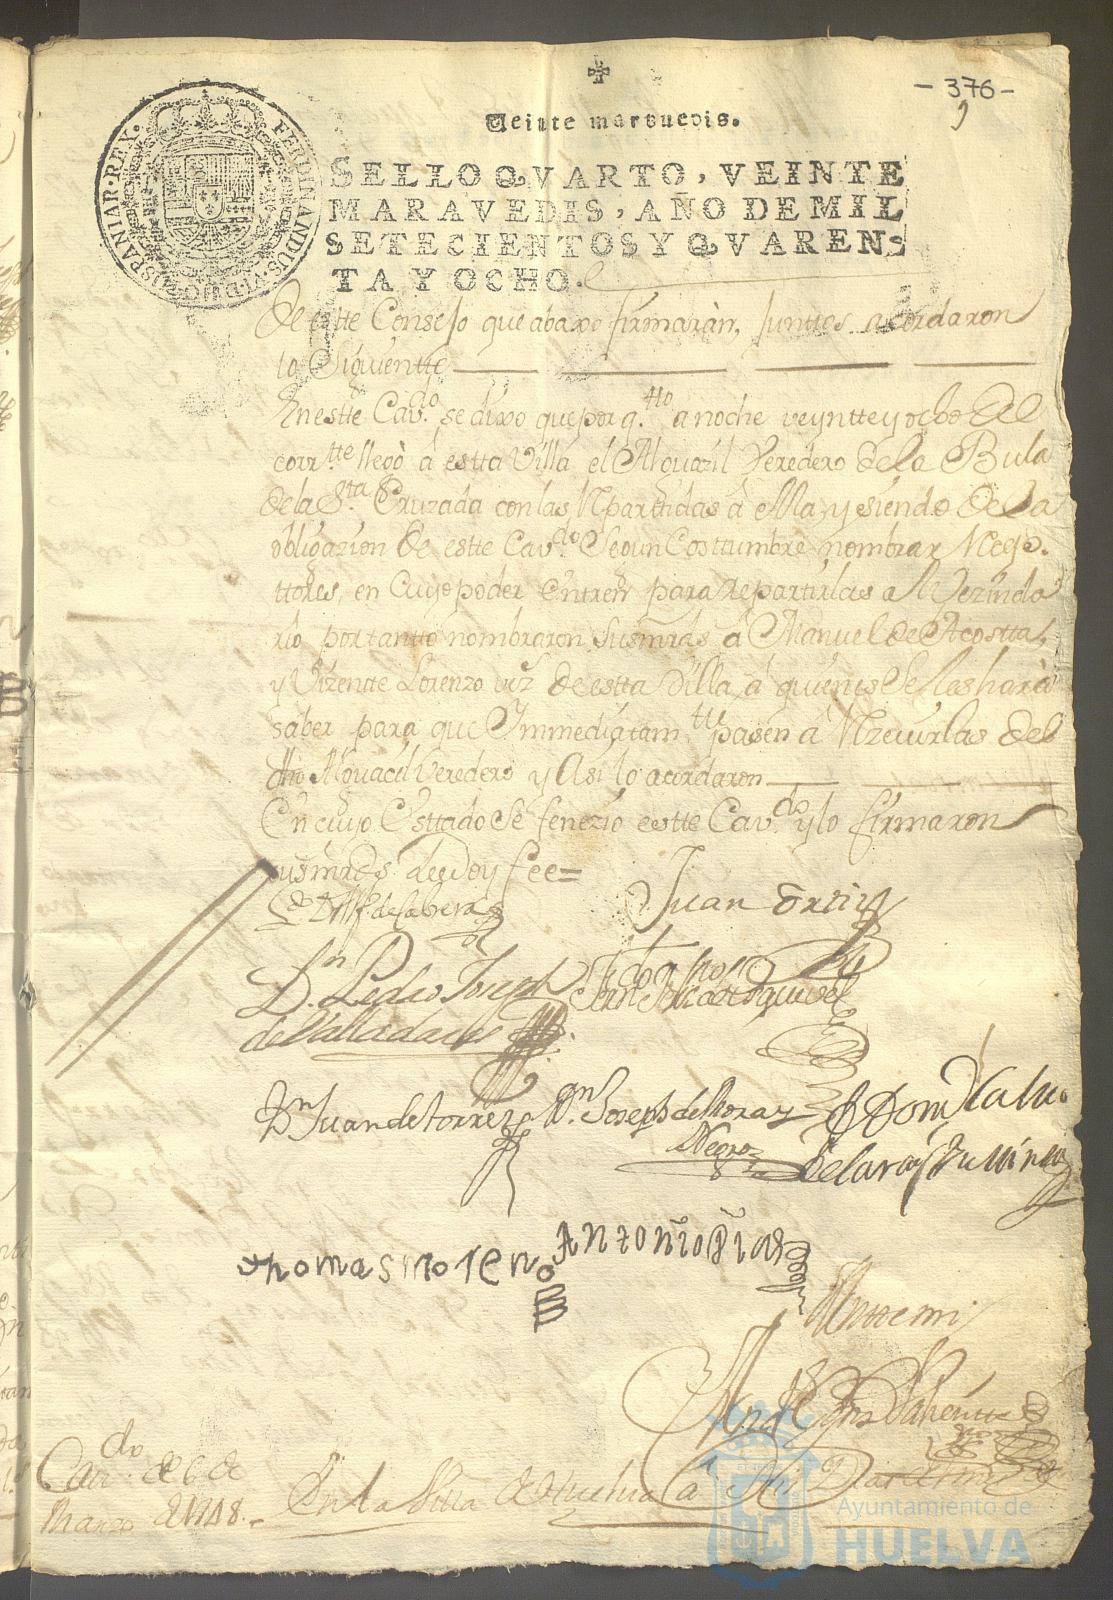 - 376 -
9
Veinte marauedis.
SELLO QVARTO, VEINTE
MARAVEDIS, AÑO DE MIL
SETECIENTOS Y QVAREN-
TA Y OCHO.
FERDINANDUS·VI·D·G·HISPANIAR·REX·
de estte Consejo que abaxo firmaràn, Junttos acordaron
lo Siguientte
En estte Cav.do se dixo que por q.tto a noche veyntte y ocho del
corr.tte llegò à estta Villa el Alguazil Veredero de la Bula
de la S.ta Cruzada con las Repartidas à ella, y siendo de la
obligazion de estte Cav.do Segun Costtumbre nombrar Recep-
ttores, en cuyo poder entren para repartirlas a el Vezinda
rio, por tantto nombraron susmrds à Manuel de Acostta,
y Vizentte Lorenzo vez.s de estta Villa, à quienes se les harà
saber para que Immediatam.tte pasen à Rezevirlas del
dho Alguacil Veredero y Asi lo acordaron
En cuyo Esttado se fenezio estte Cav.do y lo firmaron
susmrds de q doy fee=
de Cabrera
Juan Ortiz
D.n Pedro Joseph
de Valladares
D.n Juan de torres
D.n Joseph de Mora y
Negro
thomas moreno
Antonio Dias
Antte mi
Cav.do de 6 de
Marzo de 1748.
En la Villa de Huelva a
Ayuntamiento de
HUELVA